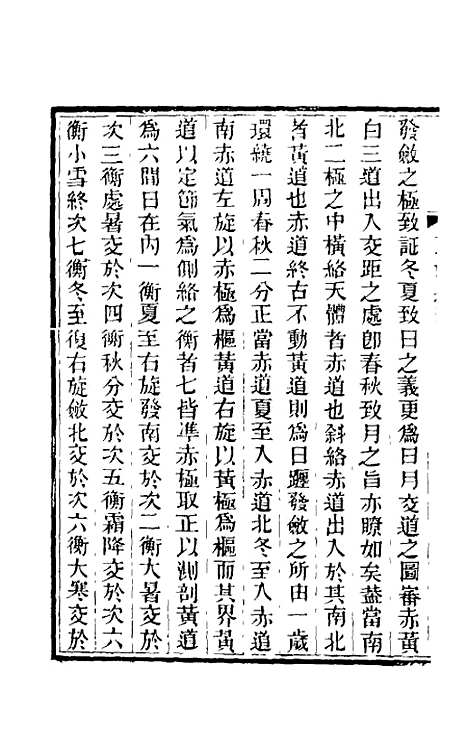 發斂之極致証冬夏致日之義更爲日月交道之圖審赤黃
白三道出入交距之處卽春秋致月之旨亦瞭如矣葢當南
北二極之中橫絡天體者赤道也斜絡赤道出入於其南北
者黃道也赤道終古不動黃道則爲日躔發斂之所由一歲
環繞一周春秋二分正當赤道夏至入赤道北冬至入赤道
南赤道左旋以赤極爲樞黃道右旋以黃極爲樞而其界黃
道以定節氣爲側絡之衡者七皆準赤極取正以測剖黃道
爲六間日在內一衡夏至右旋發南交於次二衡大暑交於
次三衡處暑交於次四衡秋分交於次五衡霜降交於次六
衡小雪終次七衡冬至復右旋斂北交於次六衡大寒交於